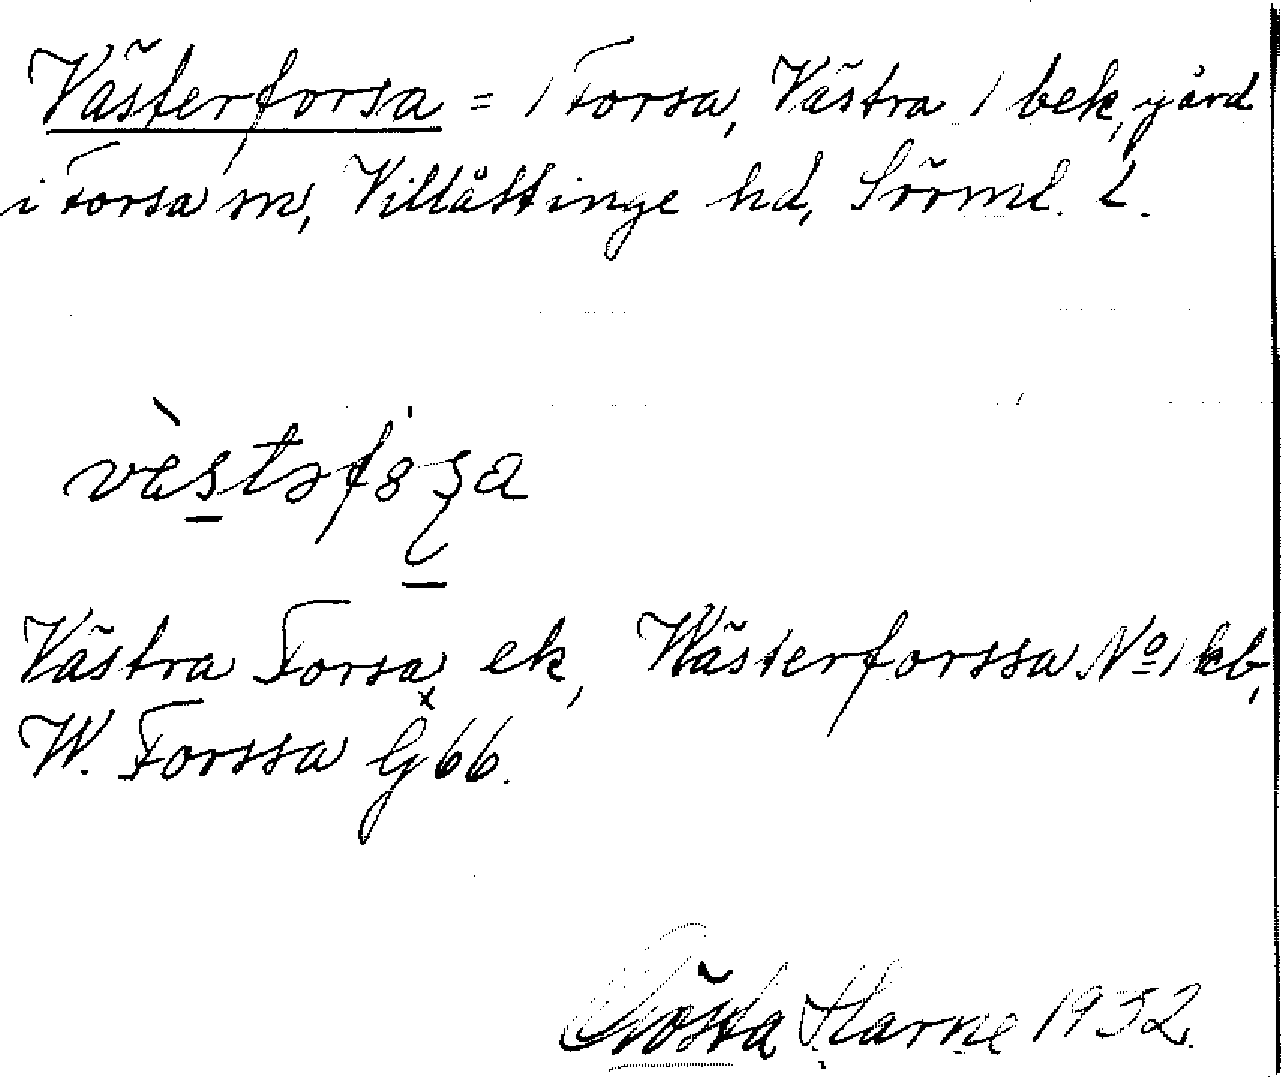 Västerforsa = / Forsa, Västra / bek, gård
i Forsa sn, Villåttinge hd, Sörml. L.
Västra Forsa, ek, Wästerforssa No 1 kb,
x
W. Forssa G 66.
Gösta Harne 1932.